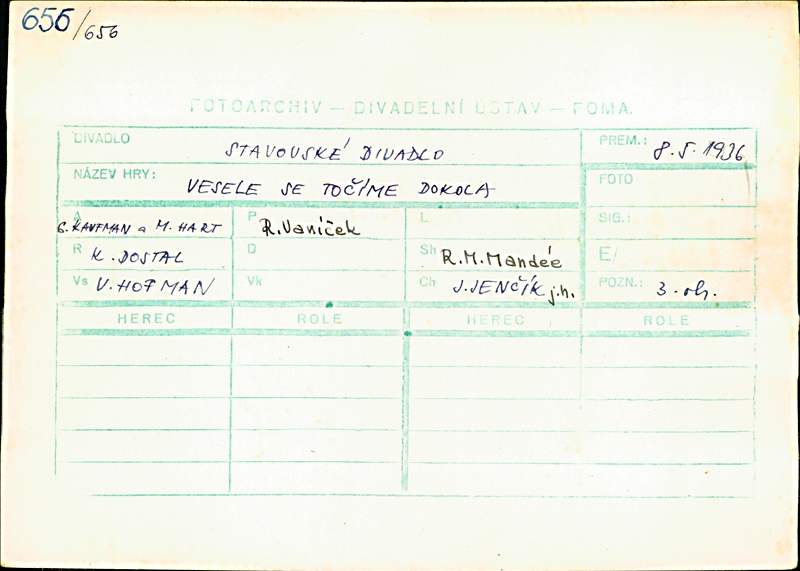 656/656
FOTOARCHIV — DIVADELNÍ ÚSTAV — FOMA.
DIVADLO STAVOVSKÉ DIVADLO PREM.: 8.5.1936
NÁZEV HRY: VESELE SE TOČÍME DOKOLA FOTO
A G. KAUFMAN a M. HART P R. Vaníček L SIG.:
R K. DOSTAL D Sh R.M. Mandée E/
Vs V. HOFMAN Vk Ch J. JENČÍK j.h. POZN.: 3. ob.
HEREC ROLE HEREC ROLE